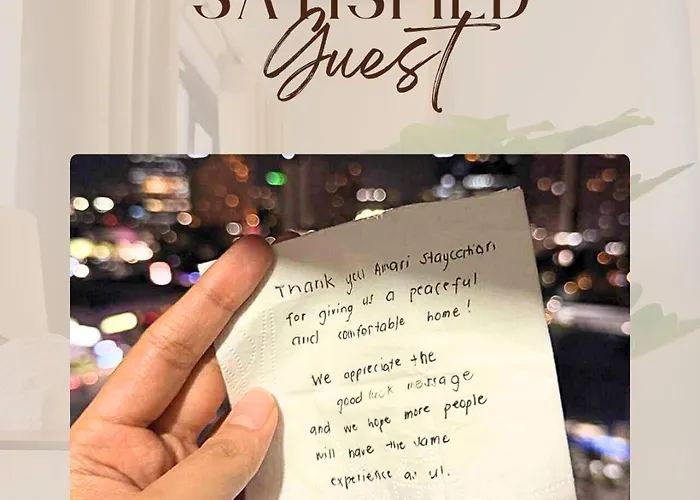 SATISFIED
Guest
Thank you Amari Staycation
for giving us a peaceful
and comfortable home!
We appreciate the
good luck message
and we hope more people
will have the same
experience as us.